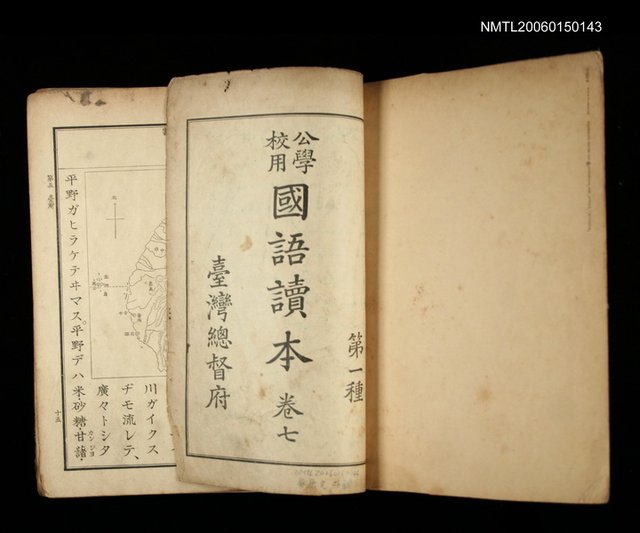 NMTL20060150143
公學
校用
國語讀本 卷七
第一種
臺灣總督府
川ガイクス
ヂモ流レテ、
廣々トシタ
平野ガヒラケテヰマス。平野デハ米・砂糖・甘藷・
カンショ
第五 臺灣
十五
北